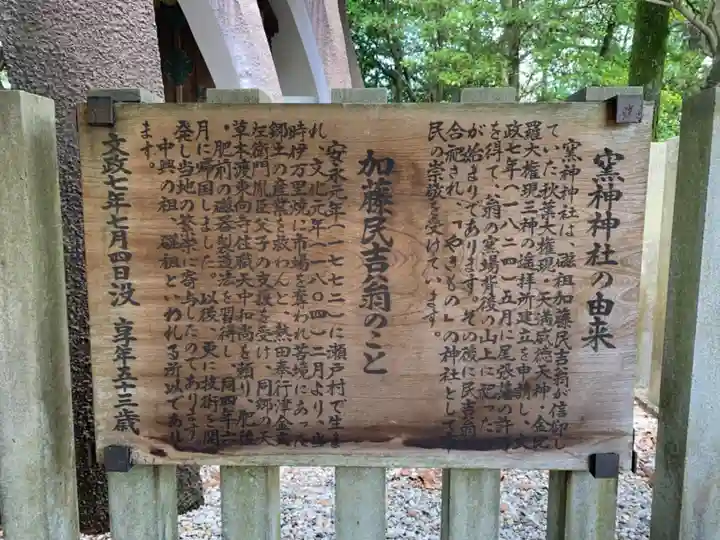 窯神神社の由来
窯神神社は、磁祖加藤民吉翁が信仰し
ていた秋葉大権現・天満威徳天神・金毘
羅大権現三神の遥拝所建立を申請し、文
政七年(一八二四)五月に尾張藩の許可
を得て、翁の窯場背後の山上に祀った
が始まりであります。その後に民吉翁
合祀され、「やきもの」の神社として市
民の崇敬を受けています。
加藤民吉翁のこと
安永元年(一七七二)に瀬戸村で生ま
れ、文化元年(一八〇四)二月より、当
時伊万里焼に市場を奪われ苦境にあった
郷土の産業を救わんと、熱田奉行津金
左衛門胤臣父子の支援を受け、同郷の天
草本渡東向寺住職天中和尚を頼り、肥後
・肥前の磁器製造法を習得し、同四年六
月に帰国しました。以後、更に技術を開
発し当地の繁栄に寄与したのであります
中興の祖、磁祖といわれる所以であり
ます。
文政七年七月四日没 享年五十三歳